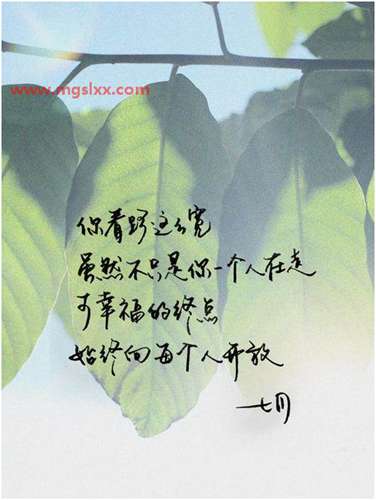 www.mgslxx.com
你看路这么宽
虽然不只是你一个人在走
可幸福的终点
始终向每个人开放
—七月